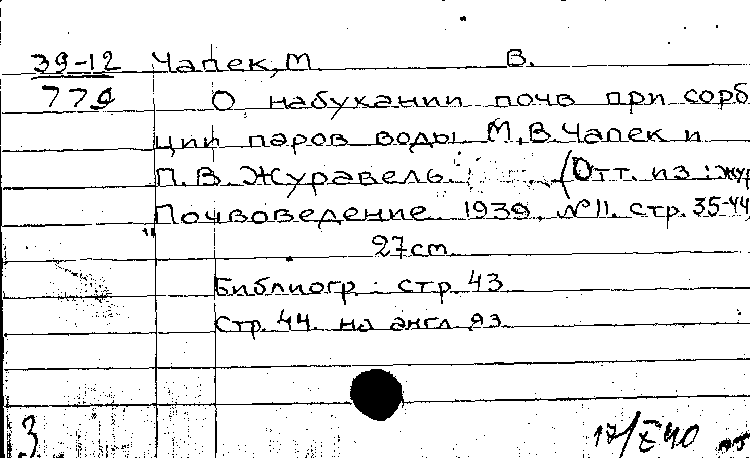 39-12 Чапек, М. В.
779 О набухании почв при сорб
ции паров воды М.В. Чапек и
П.В. Журавель. (Отт. из: жур
Почвоведение 1939. №11. стр. 35-44
27cm
Библиогр: стр. 43
Стр. 44. на англ. яз.
3 17/X 40